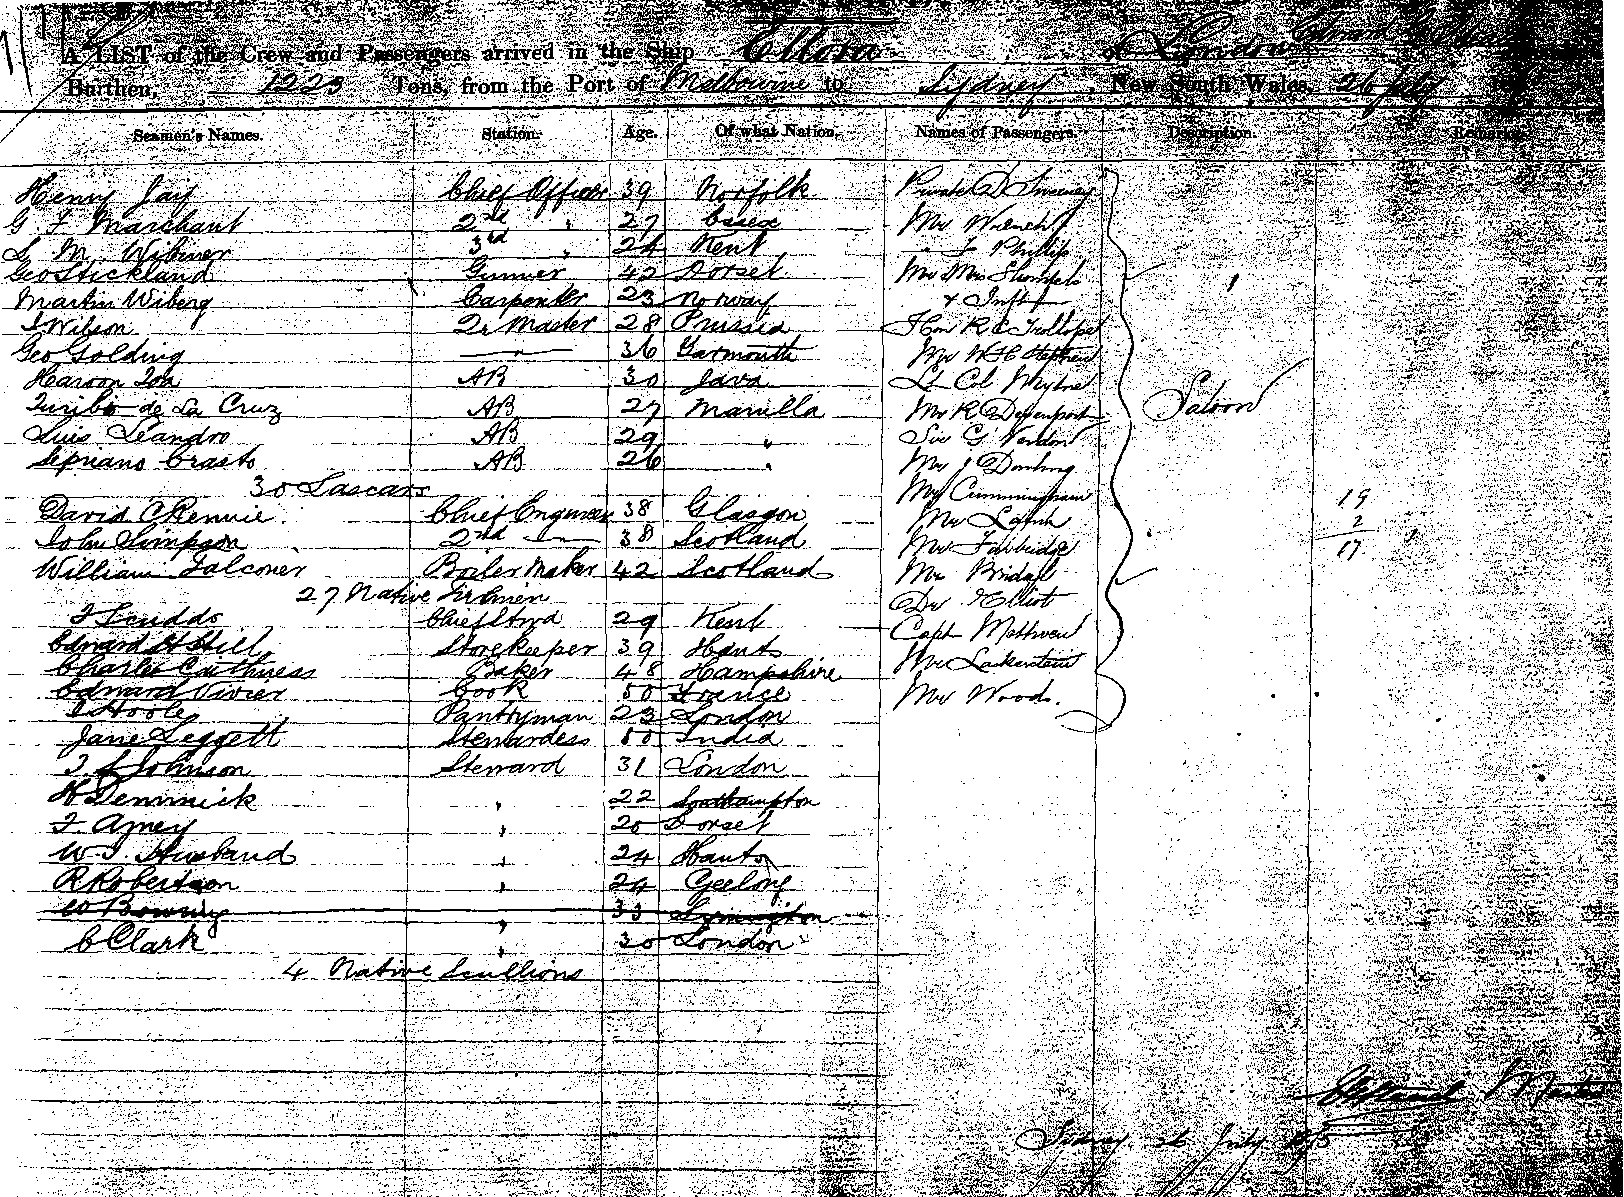 A LIST of the Crew and Passengers arrived in the Ship Ellora of London
Burthen, 1223 Tons, from the Port of Melbourne to Sydney, New South Wales, 26 July
Seamen's Names. Station. Age. Of what Nation. Names of Passengers. Description. Remarks.
Henry Jay Chief Officer 39 Norfolk Private D Sweeney
G. F. Marchant 2nd " 27 Essex Mr Wrench
S. M. Wibmer 3rd " 24 Kent " F Phillip
Geo Stickland Gunner 42 Dorset Mr Mrs
Martin Wiberg Carpenter 23 Norway + Inft
J Wilson Qr Master 28 Prussia Hon R C Trollope
Geo Golding " 36 Yarmouth Mr W H Stephen
Haroon AB 30 Java Lt Col
Turibio de La Cruz AB 27 Manilla Mr R Davenport Saloon
Luis Leandro AB 29 " Sir G Verdon
Sipriano Crasto AB 26 " Mr J
30 Lascars Mr Cunningham 19
David C Rennie Chief Engineer 38 Glasgow Mr Lamb 2
John Simpson 2nd " 38 Scotland Mr Fairbridge 17
William Falconer Boiler Maker 42 Scotland Mr
27 Native Firemen Dr Elliot
F Scuddo Chief Stwd 29 Kent Capt
Edward H Hill Storekeeper 39 Hants Mr
Charles Caithness Baker 48 Hampshire
Edward Vivier Cook 50 France Mr Woods.
J Hoole Pantryman 23 London
Jane Leggett Stewardess 50 India
J L Johnson Steward 31 London
H Demmick " 22 Southampton
F. Amey " 20 Dorset
W. J. Husband " 24 Hants
R Robertson " 24 Geelong
W Bowring " 33 Lymington
C Clark " 30 London
4 Native Scullions
Master
Sydney July